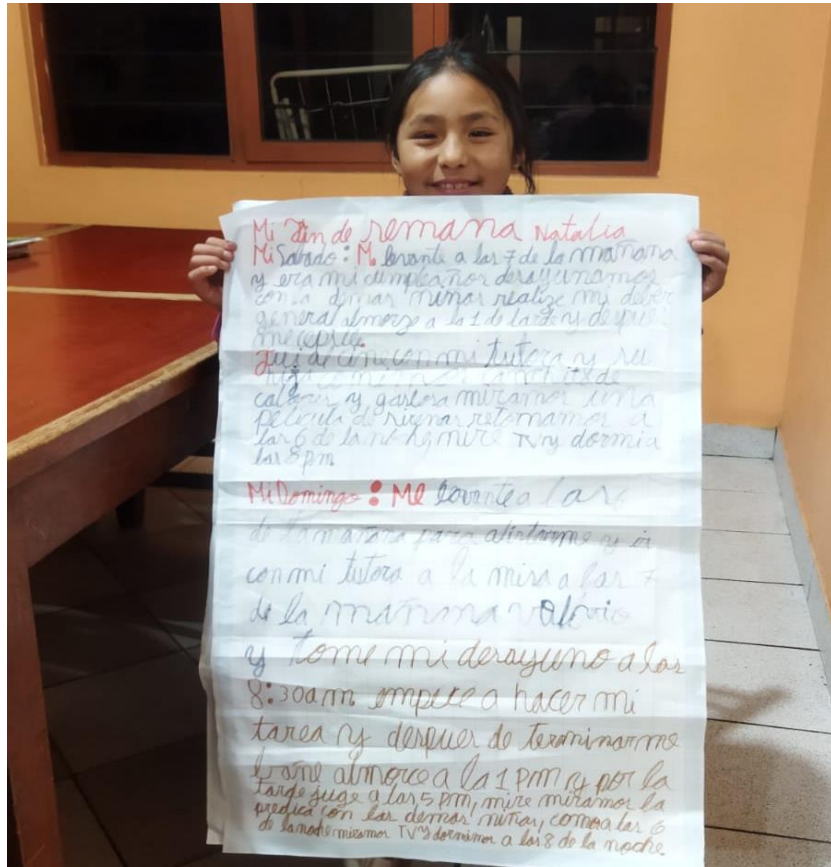 Mi fin de semana Natalia
Mi Sabado: Me levante a las 7 de la mañana
y era mi cumpleaños desayunamos
con a demas niñas realize mi deber
general almorze a la 1 de la tarde y depues
me cepille.
Fui de cine con mi tutora y su
hija comimos canchita de
y gaseosa miramos una
pelicula de sirenas retornamos a
las 6 de la noche mire TV y dormi a
las 8 pm
Mi Domingo: Me levante a las
de la mañana para alistarme y ir
con mi tutora a la misa a las 7
de la mañana
y tome mi desayuno a las
8:30am empece a hacer mi
tarea y despues de terminar me
bañe almorce a la 1 pm y por la
tarde juge a las 5 pm, mire miramos la
predica con las demas niñas, comer a las 6
de la noche miramos TV y dormimos a las 8 de la noche.